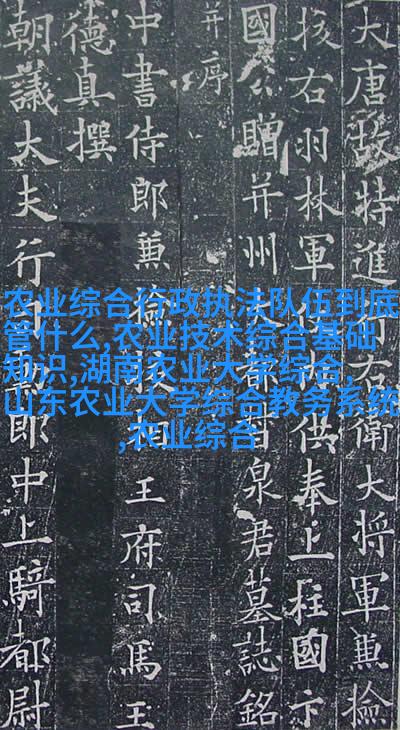 大唐故特進行右衛大将軍兼撿
挍右羽林軍仗內供奉上柱國卞
國公贈并州大都督泉君墓誌銘
并序
中書侍郎兼檢校相王府司馬王
德真撰
朝議大夫行司勳郎中上騎都尉
农业综合行政执法队伍到底
管什么,农业技术综合基础
知识,湖南农业大学综合,
山东农业大学综合教务系统
,农业综合